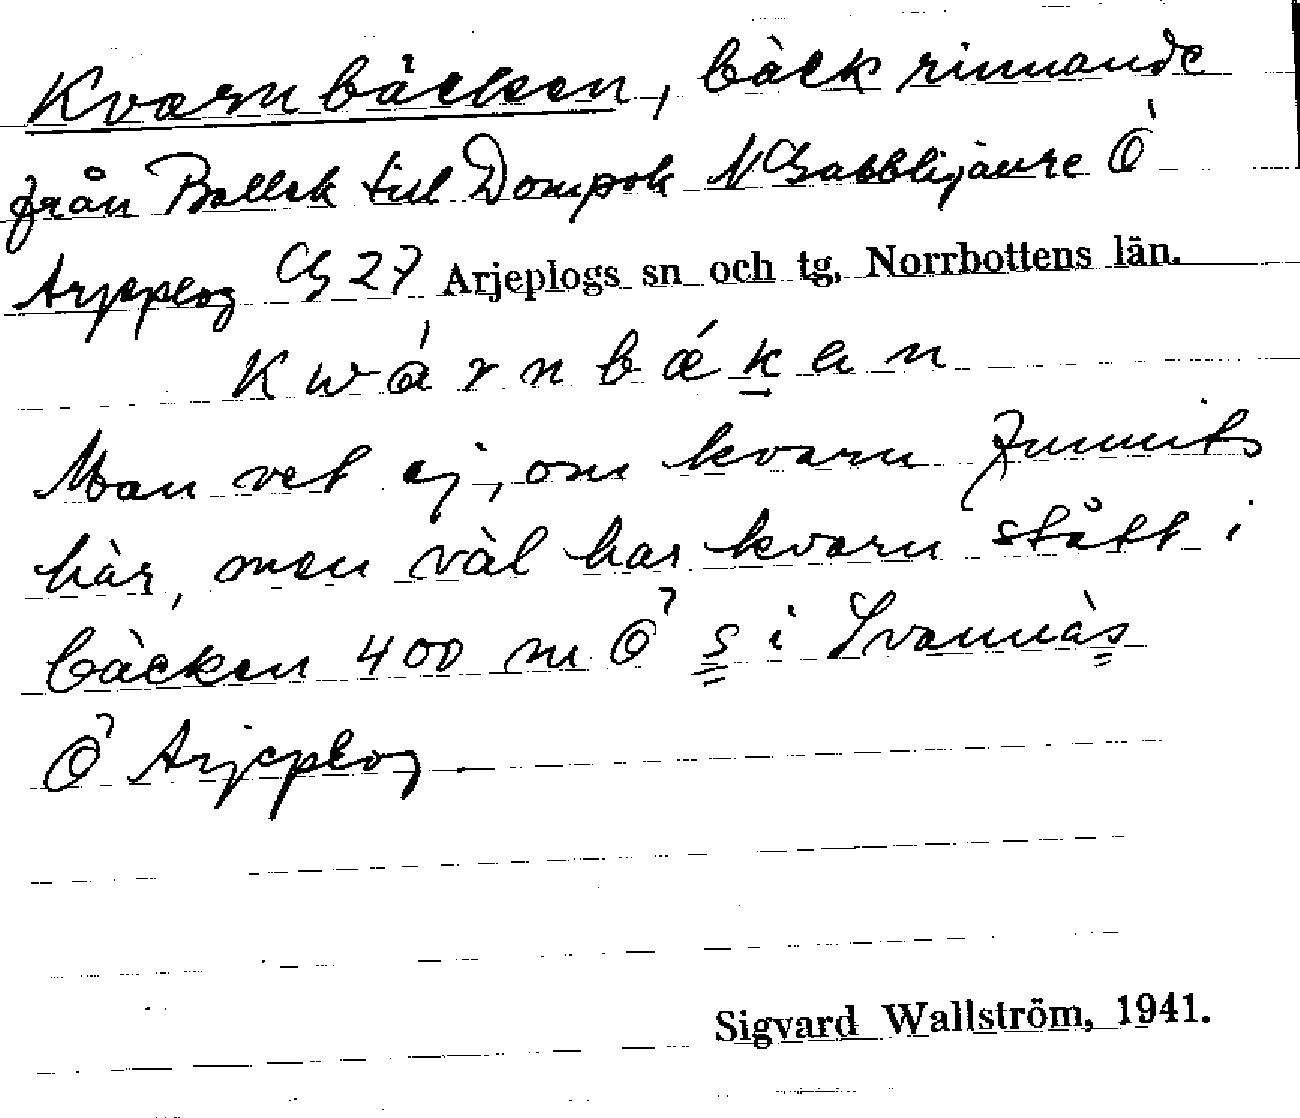 Kvarnbäcken, bäck rinnande
från Ballek till Dompok N Gabblijaure Ö
Arjeplog G 27 Arjeplogs sn och tg, Norrbottens län.
Kwárnbǽkan
Man vet ej, om kvarn funnits
här, men väl har kvarn stått i
bäcken 400 m Ö s i Svannäs
Ö Arjeplog
Sigvard Wallström, 1941.